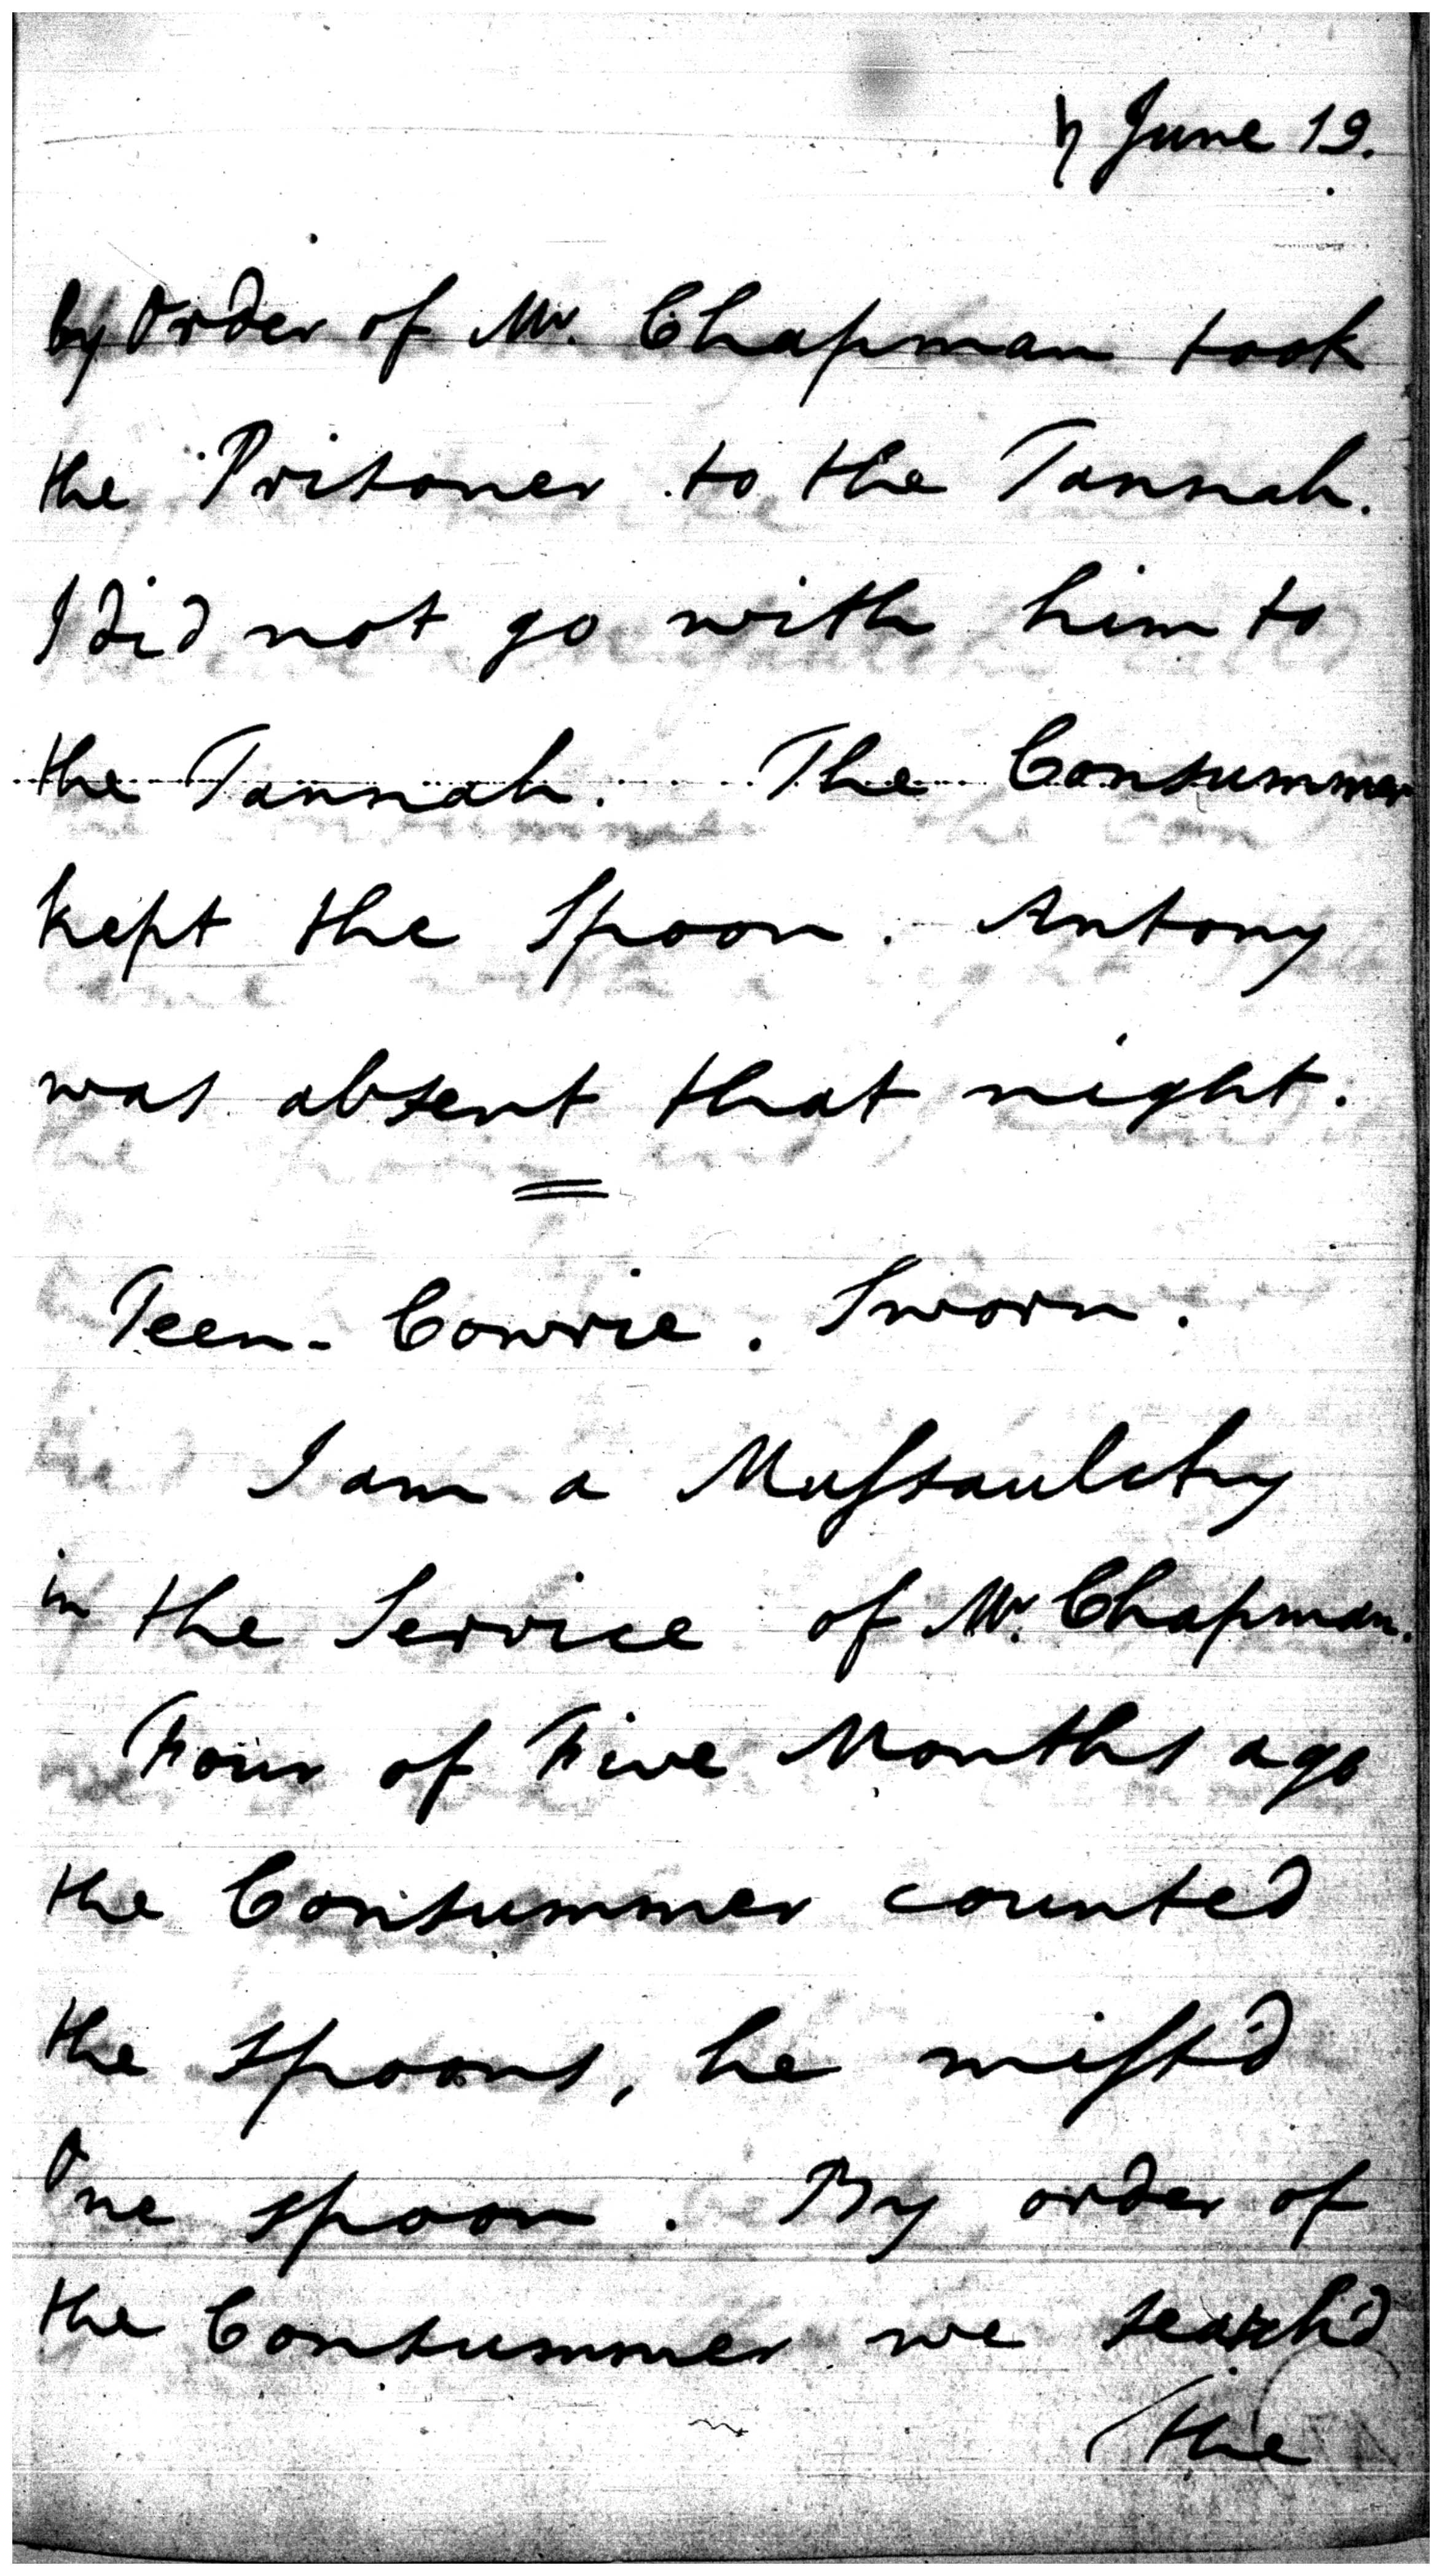 ♄ June 19.
by Order of Mr. Chapman took
the Prisoner to the Tannah.
I did not go with him to
the Tannah. The Consummer
kept the Spoon. Antony
was absent that night.
Teen-Cowrie. Sworn.
I am a Mussaulchy
in the Service of Mr. Chapman.
Four of Five Months ago
the Consummer counted
the spoons, he miss'd
One spoon. By order of
the Consummer we search'd
the